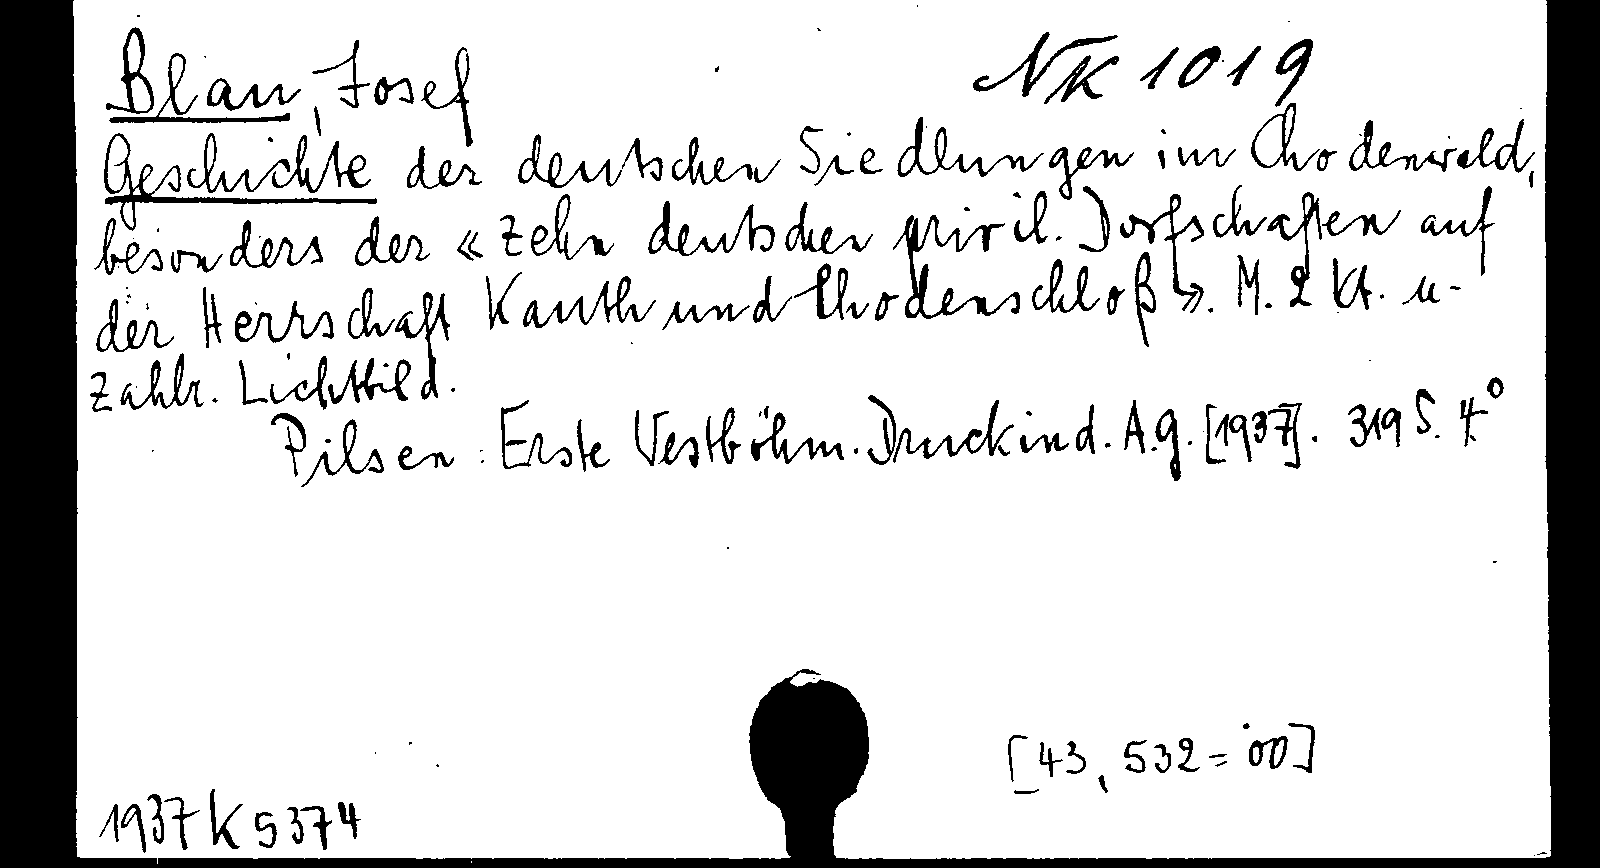 Blau, Josef
NK 1019
Geschichte der deutschen Siedlungen im Chodenwald,
besonders der «Zehn deutschen privil. Dorfschaften auf
der Herrschaft Kauth und Chodenschloß». M. 2 Kt. u.
Zahlr. Lichtbild.
Pilsen: Erste Westböhm. Druckind. A.g. [1937]. 319 S. 4°
[43, 532 = 00]
1937 K 5374